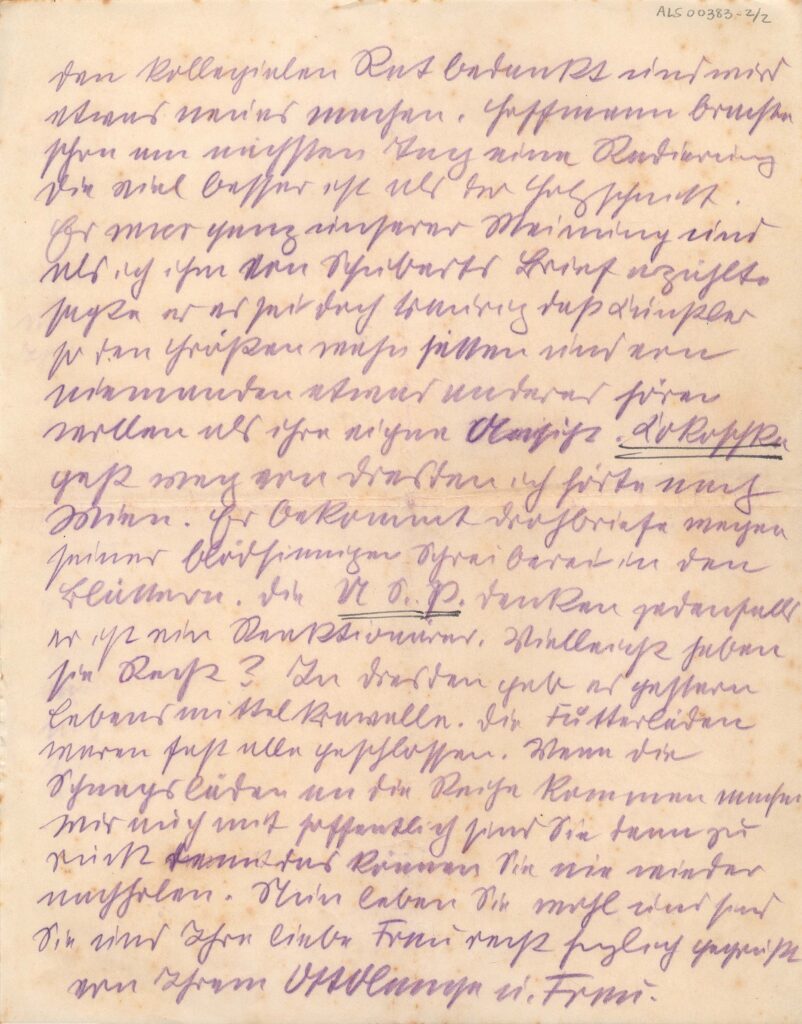 ALS 00383-2/2
den kollegialen Rat bedankt und wird
etwas neues machen. Hoffmann brachte
schon am nächsten Tag eine Radierung
die viel besser ist als der Holzschnitt.
Er war ganz unserer Meinung und
als ich ihm von Schuberts Brief erzählte
sagte er es sei doch traurig daß Künstler
so den Größenwahn hätten und von
niemanden etwas anderes hören
wollen als ihre eigne Ansicht. Kokoschka
geht weg von Dresden ich hörte nach
Wien. Er bekommt Drohbriefe wegen
seiner blödsinnigen Schreiberei in den
Blättern. Die U. S. P. denken jedenfalls
er ist ein Reaktionärer. Vielleicht haben
sie Recht? In Dresden gab es gestern
Lebensmittelkrawalle. Die Futterläden
waren fast alle geschlossen. Wenn die
Schnapsläden an die Reihe kommen machen
wir auch mit hoffentlich sind Sie dann zu
rück denn das können Sie nie wieder
nachholen. Nun leben Sie wohl und sind
Sie und Ihre liebe Frau recht herzlich gegrüßt
von Ihrem Otto Lange u. Frau.